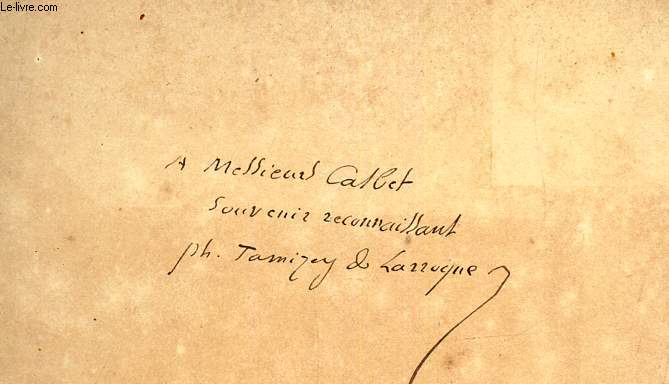 Le-livre.com
A Messieurs Calbet
souvenir reconnaissant
ph. Tamizey de Larroque